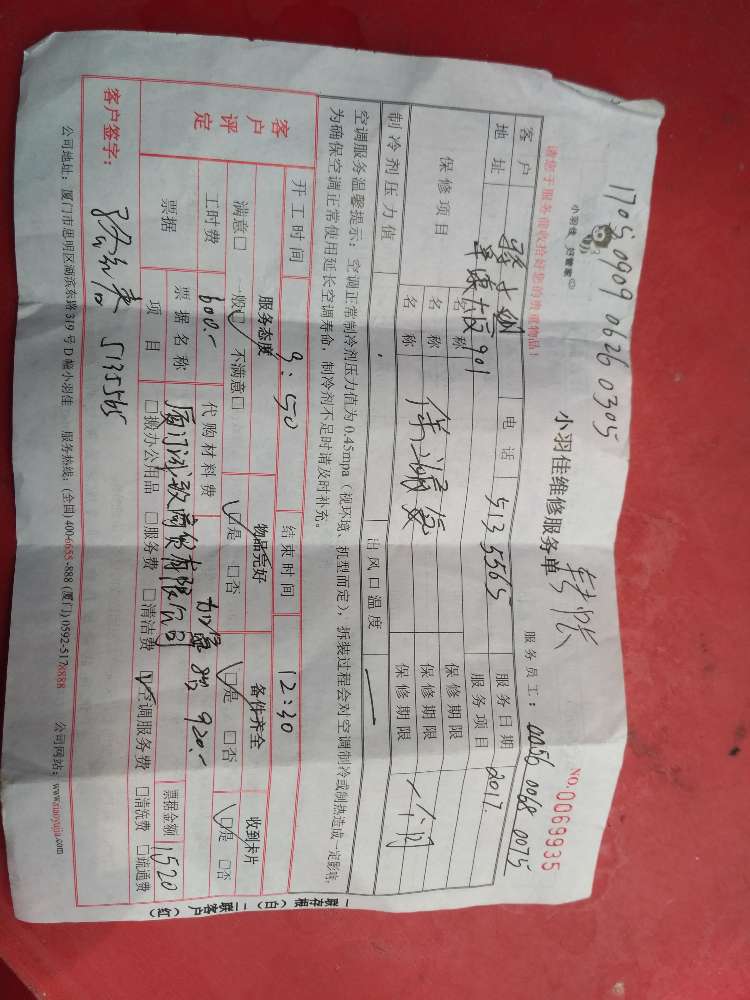 1705 0909 0626 0305
小羽佳 好管家
小羽佳维修服务单
转账
NO.0069935
请您于服务前收拾好您的贵重物品!
服务员工: 0056 0068 0075
客户 电话 513 5565 服务日期 2017.
地址 大厦901 服务项目
保修项目 名称 保修期限
名称 保修期限
名称 保修期限 一个月
制冷剂压力值 出风口温度
空调服务温馨提示: 空调正常制冷剂压力值为0.45mpa(视环境、机型而定), 拆装过程会对空调制冷或制热造成一定影响,
为确保空调正常使用延长空调寿命, 制冷剂不足时请及时补充。
开工时间 9:50 结束时间 12:30
客户评定
服务态度 物品完好 备件齐全 收到卡片
满意□ 一般□ 不满意□ □是 □否 □是 □否 □是 □否
工时费 600.- 代购材料费 920.-
票据 票据名称 厦门 商贸有限公司 票据金额 1520
项目 □搬办公用品 □服务费 □清洁费 □空调服务费 □清洗费 □疏通费
客户签字: 5135565
公司地址: 厦门市思明区湖滨东路319号D幢小羽佳 服务热线: (全国) 400-6655-888 (厦门) 0592-5178888 公司网站: www.xiaoyujia.com
一联存根(白) 二联客户(红)